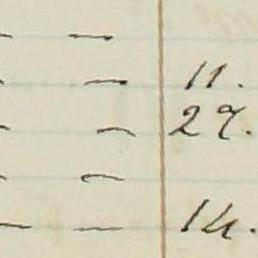 — —
— — 11.
— — 27.
— —
— — 14.